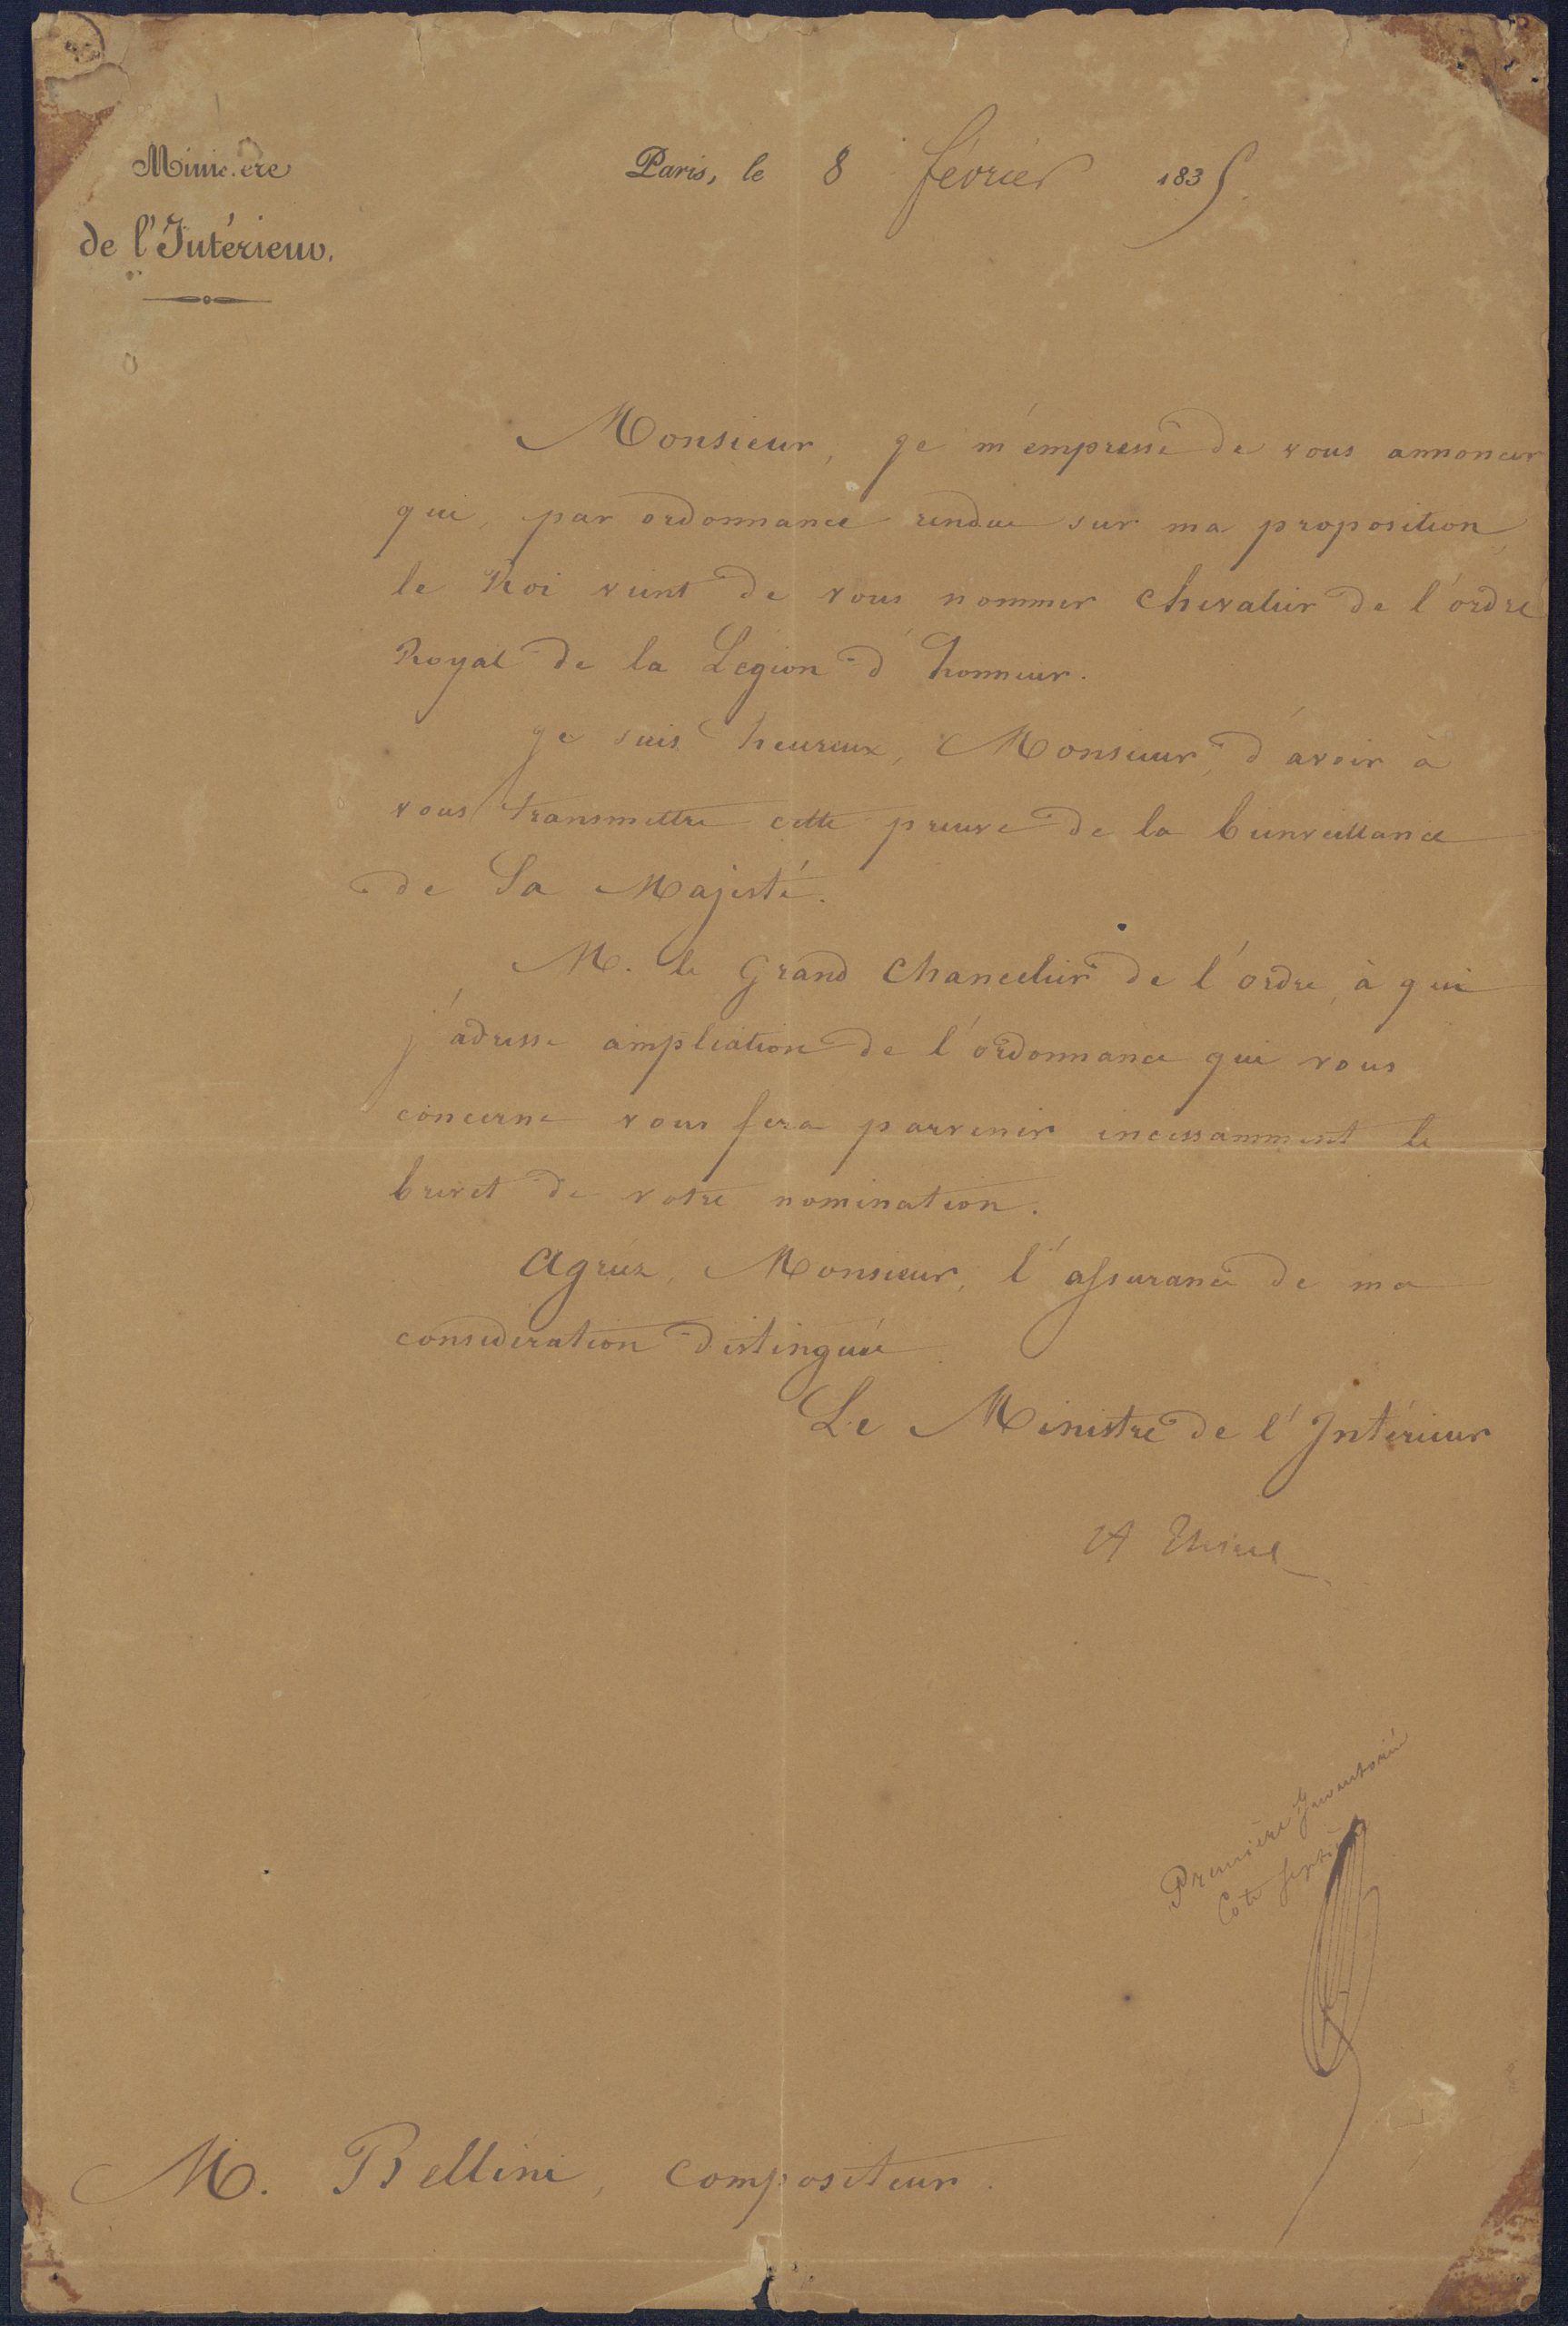 Ministère
de l'Intérieur.
Paris, le 8 février 1835.
Monsieur, je m'empresse de vous annoncer
que, par ordonnance rendue sur ma proposition,
le Roi vient de vous nommer Chevalier de l'ordre
Royal de la Legion d'honneur.
Je suis heureux, Monsieur, d'avoir à
vous transmettre cette preuve de la bienveillance
de Sa Majesté.
M. le Grand Chancelier de l'ordre, à qui
j'adresse ampliation de l'ordonnance qui vous
concerne vous fera parvenir incessamment le
brevet de votre nomination.
Agréez, Monsieur, l'assurance de ma
consideration distinguée.
Le Ministre de l'Intérieur
A Thiers
Première
Cote
M. Bellini, compositeur.